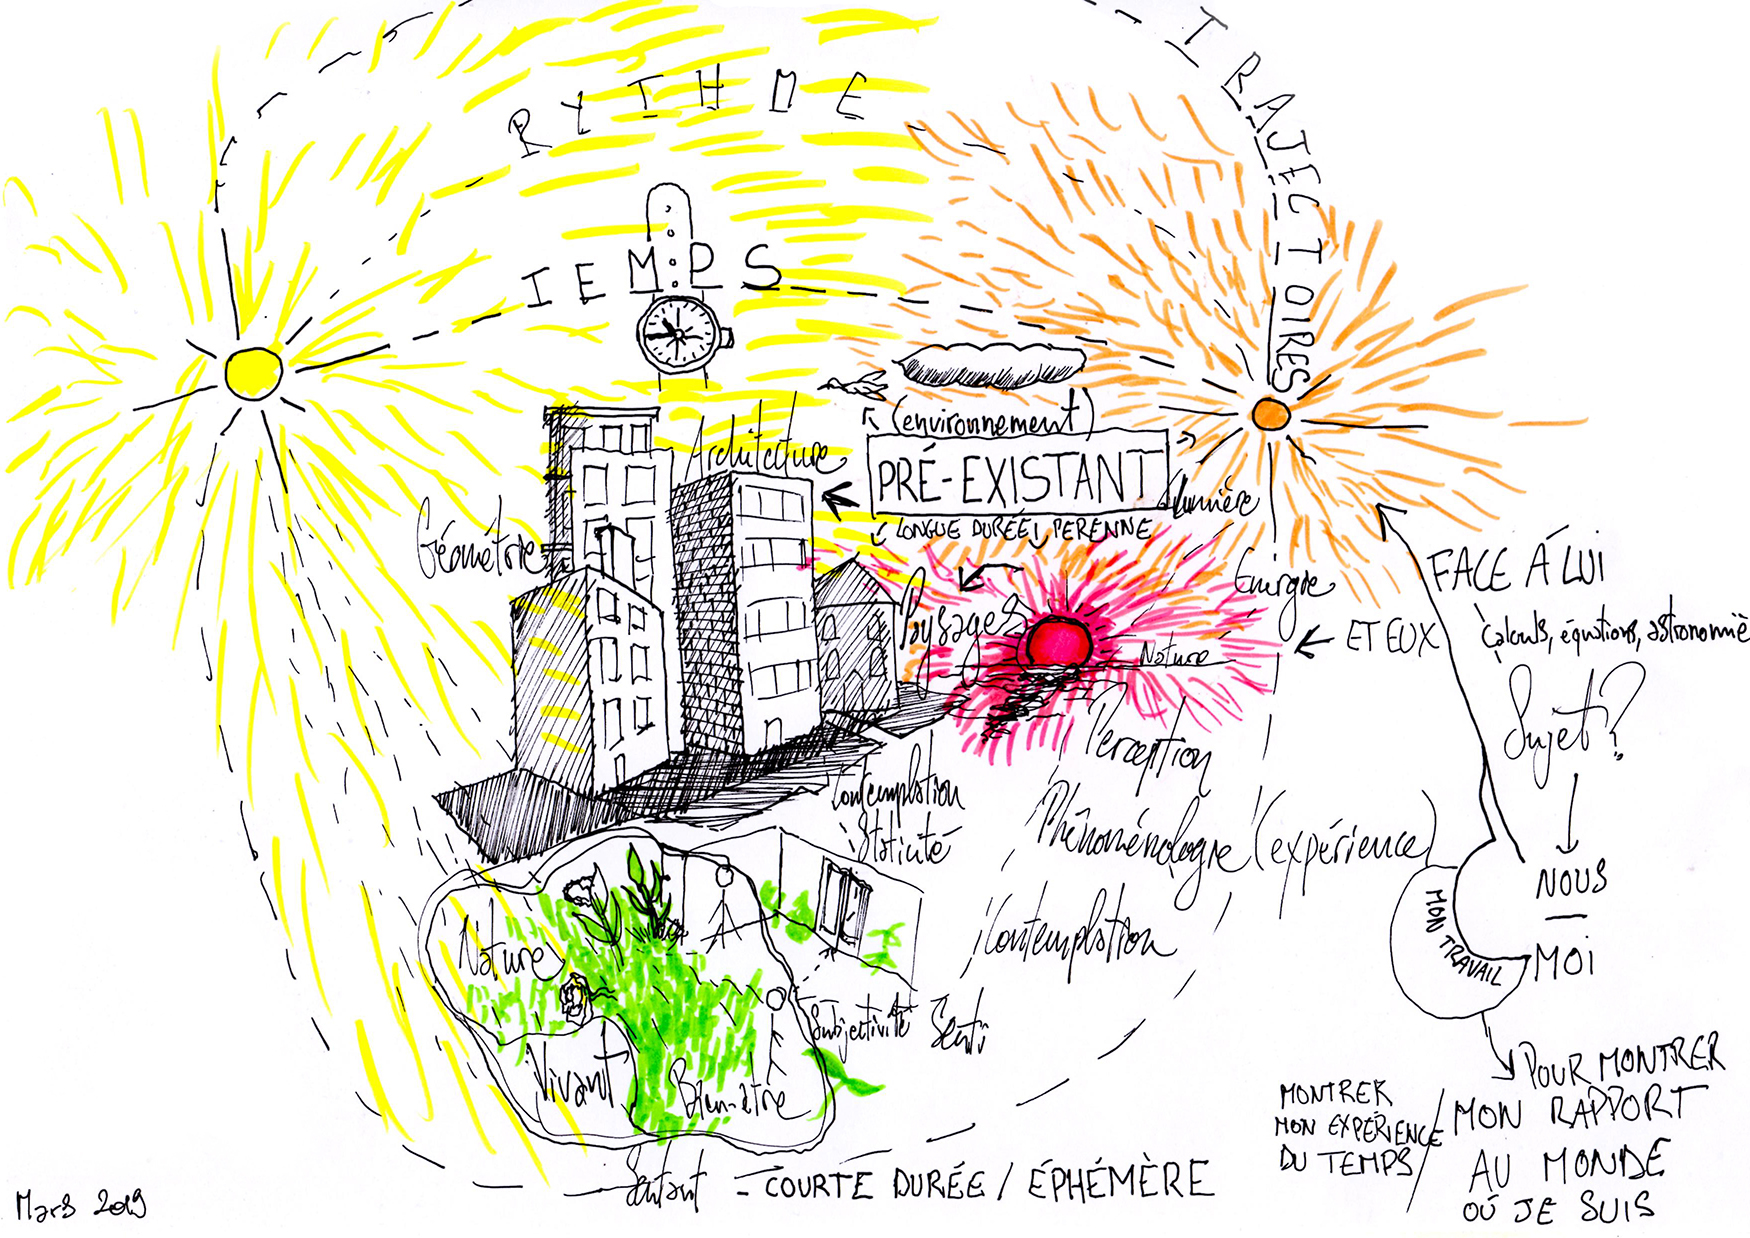 TRAJECTOIRES
RYTHME
TEMPS
(environnement)
Architecture
PRÉ-EXISTANT
Lumière
LONGUE DURÉE, PERENNE
Géométrie
Paysages
Energie
Nature
FACE Á LUI
ET EUX
Calculs, équations, astronomie
Sujet?
Perception
Contemplation
Staticité
Phénoménologie (expérience)
Contemplation
NOUS
MOI
MON TRAVAIL
Nature
Subjectivité Senti
Vivant
Bien-être
Sentant = COURTE DURÉE / ÉPHÉMÈRE
MONTRER
MON EXPÉRIENCE
DU TEMPS /
POUR MONTRER
MON RAPPORT
AU MONDE
OÙ JE SUIS
Mars 2019